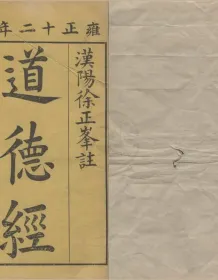 雍正十二年
漢陽徐正峯註
道德經